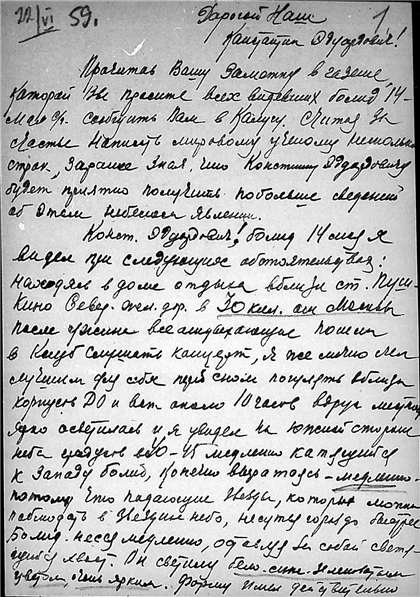 22/VI 59. Дарогой Наш 1
Канстантин Эдуардович!
Прочитав Вашу Заметку в газете
каторой Вы просите всех видевших болид 14-
Мая с/г. сообщить Вам в Калугу. Считая за
счастье написать мировому ученому несколько
строк, заранее зная, что Констинтину Эдуардовичу
будет приятно получить побольше сведений
об этом небесном явлении.
Конст. Эдуардович! болид 14 мая я
видел при следующих обстоятельствах:
находясь в доме отдыха вблизи ст. Пуш-
кино Север. жел. дор. в 30 кил. от Москвы
после ужина все отдыхающие пошли
в Клуб слушать канцерт, я же лично счел
лучшим для себя перед сном погулять вблизи
корпусов ДО и вот около 10 часов вдруг
ярко осветилась и я увидел на южной стороне
неба градусов в 40-45 медленно катящийся
к Западу болид, конечно выражаясь - медленно-
потому что падающие звезды, которые можно
наблюдать в Звездном небо, несутся гораздо быстрее
Болид несся медленно, оставляя за собой светя-
щийся хвост. Он светил бело-сине-зеленоватым
цветом, очень ярким. Форму имел действительно